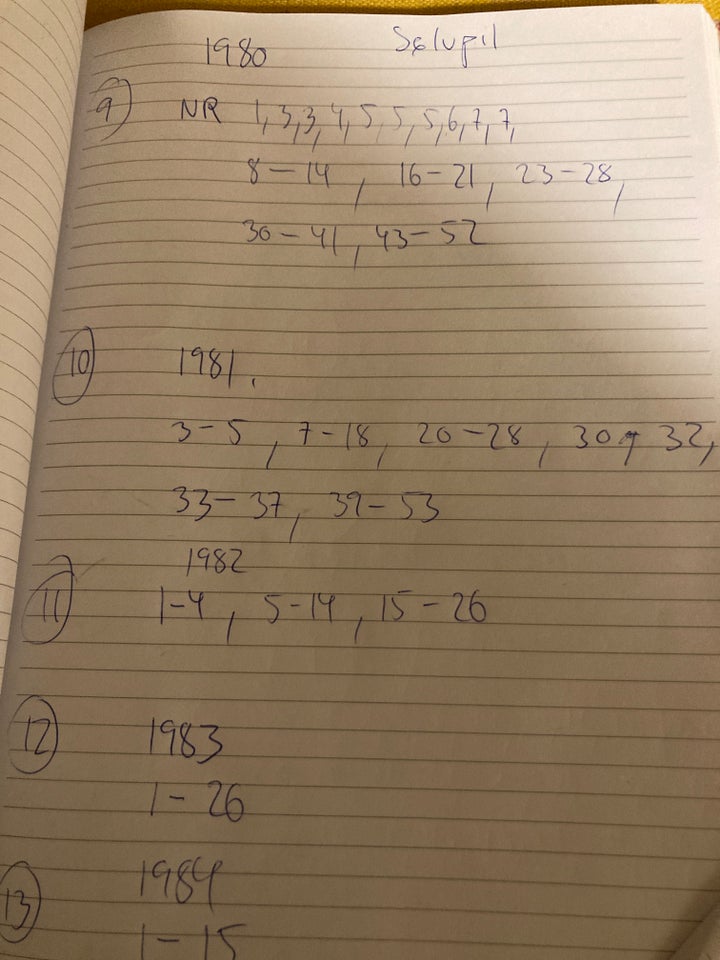 1980 Sølvpil
9 NR 1,3,3,4,5,5,5,6,7,7,
8-14, 16-21, 23-28,
30-41, 43-52
10 1981.
3-5, 7-18, 20-28, 30, 32,
33-37, 39-53
1982
11 1-4, 5-14, 15-26
12 1983
1-26
1984
13 1-15